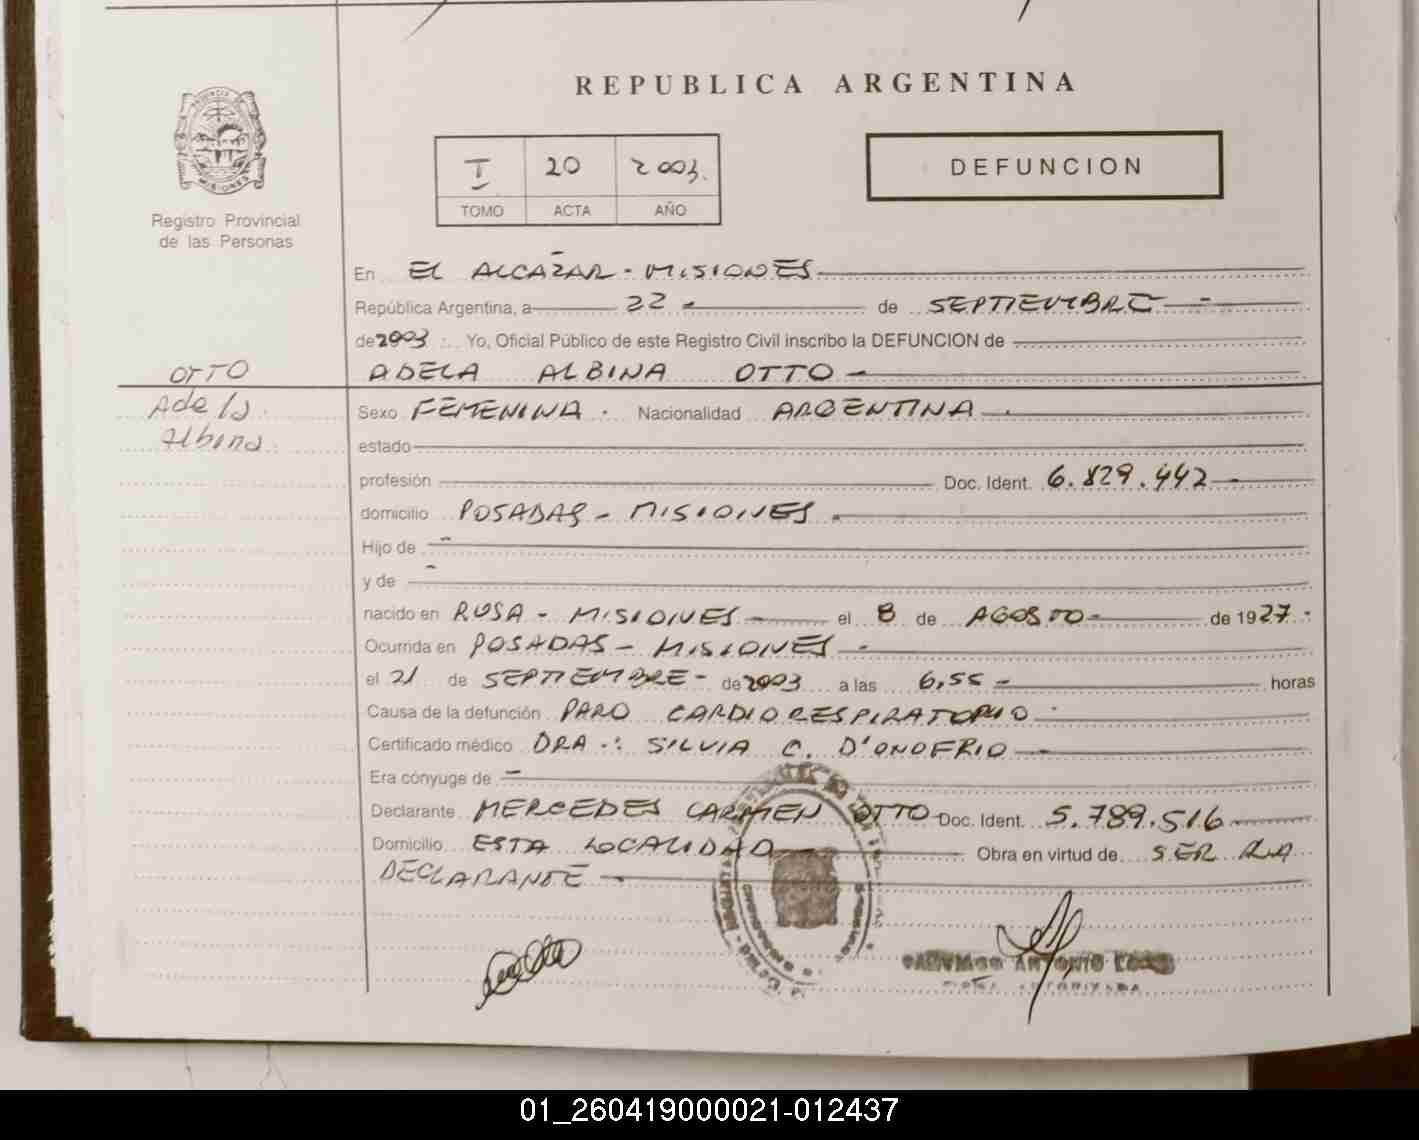 REPUBLICA ARGENTINA
PROVINCIA DE
MISIONES
Registro Provincial
de las Personas
I 20 2003.
TOMO ACTA AÑO
DEFUNCION
En EL ALCAZAR - MISIONES
República Argentina, a 22 - de SEPTIEMBRE -
de 2003 Yo, Oficial Público de este Registro Civil inscribo la DEFUNCION de
OTTO
Adela
Albina
ADELA ALBINA OTTO -
Sexo FEMENINA . Nacionalidad ARGENTINA .
estado
profesión Doc. Ident. 6.829.442 -
domicilio POSADAS - MISIONES .
Hijo de -
y de -
nacido en ROSA - MISIONES - el 8 de AGOSTO - de 1927 -
Ocurrida en POSADAS - MISIONES -
el 21 de SEPTIEMBRE - de 2003 a las 6,55 - horas
Causa de la defunción PARO CARDIORESPIRATORIO
Certificado médico DRA .: SILVIA C. D'ONOFRIO -
Era cónyuge de -
Declarante MERCEDES CARMEN OTTO - Doc. Ident. 5.789.516
Domicilio ESTA LOCALIDAD - Obra en virtud de SER LA
DECLARANTE -
ANTONIO
01_260419000021-012437